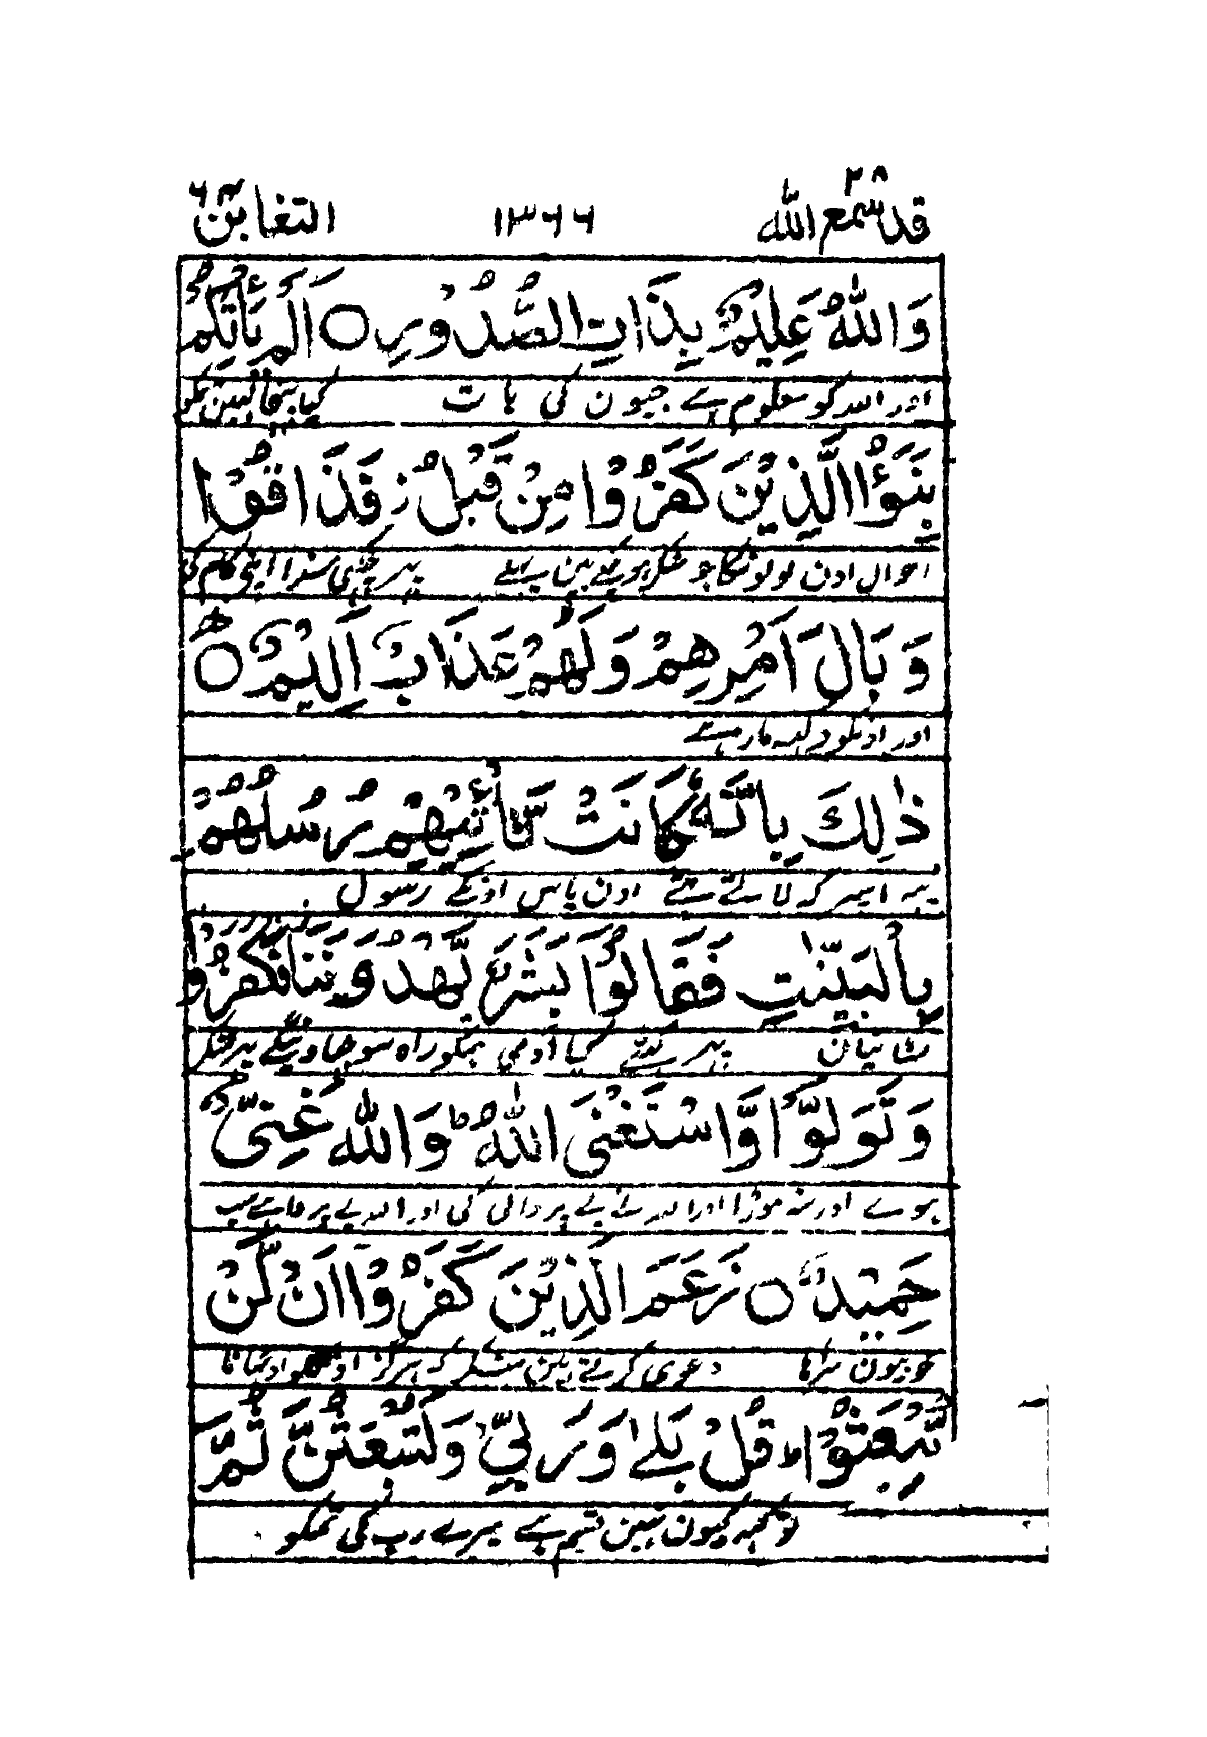 قد سمع الله ٢٨ ١٣٦٦ التغابن ٦٤
وَاللّٰهُ عَلِيْمٌۢ بِذَاتِ الصُّدُوْرِ ○ اَلَمْ يَاْتِكُمْ
اور اللہ کو معلوم ہے جیون کی بات کیا پہنچا نہین تمکو
نَبَؤُا الَّذِيْنَ كَفَرُوْا مِنْ قَبْلُ ز فَذَاقُوْا
احوال اون لوگونکا جو منکر ہو ئے ہین پہلے پہر چکہی سزا اپنی کام کی
وَبَالَ اَمْرِهِمْ وَلَهُمْ عَذَابٌ اَلِيْمٌ ○
اور اونکو دکہہ مار ہے
ذٰلِكَ بِاَنَّهٗ كَانَتْ تَّاْتِيْهِمْ رُسُلُهُمْ
یہہ اسپر کہ لاتے تہے اون پاس اونکے رسول
بِالْبَيِّنٰتِ فَقَالُوْٓا بَشَرٌ يَّهْدُوْنَنَا فَكَفَرُوْا
نشانیان پہر کہتے کیا آدمی ہمکو راہ سوجہاوینگے پہر منکر
وَتَوَلَّوْا وَّاسْتَغْنَى اللّٰهُ ط وَاللّٰهُ غَنِىٌّ
ہوے اور منہ موڑا اور اللہ نے بے پروائی کی اور اللہ بے پرواہے سب
حَمِيْدٌ ○ زَعَمَ الَّذِيْنَ كَفَرُوْٓا اَنْ لَّنْ
خوبیون سراہا دعوی کرتے ہین منکر کہ ہرگز اونکو اوٹہانا
يُّبْعَثُوْا ط قُلْ بَلٰى وَرَبِّيْ لَتُبْعَثُنَّ ثُمَّ
تو کہہ کیون نہین قسم ہے میرے رب کی تمکو